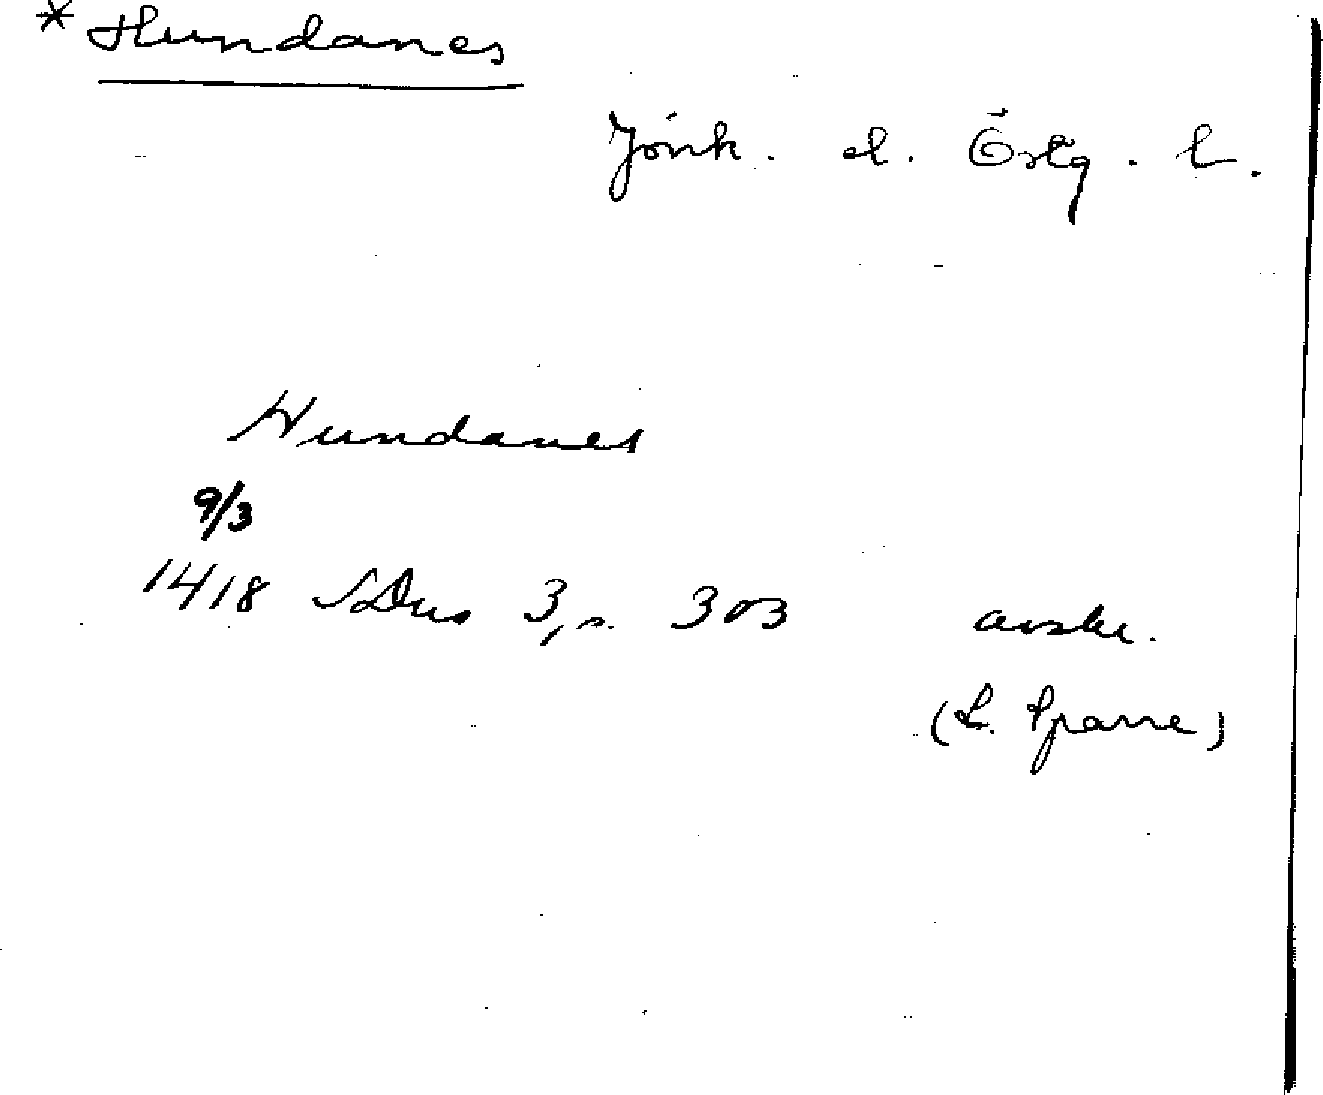 * Hundanes
Jönk. el. Östg. l.
Hundanes
9/3
1418 SDns 3, s. 303 avskr.
(L. Sparre)